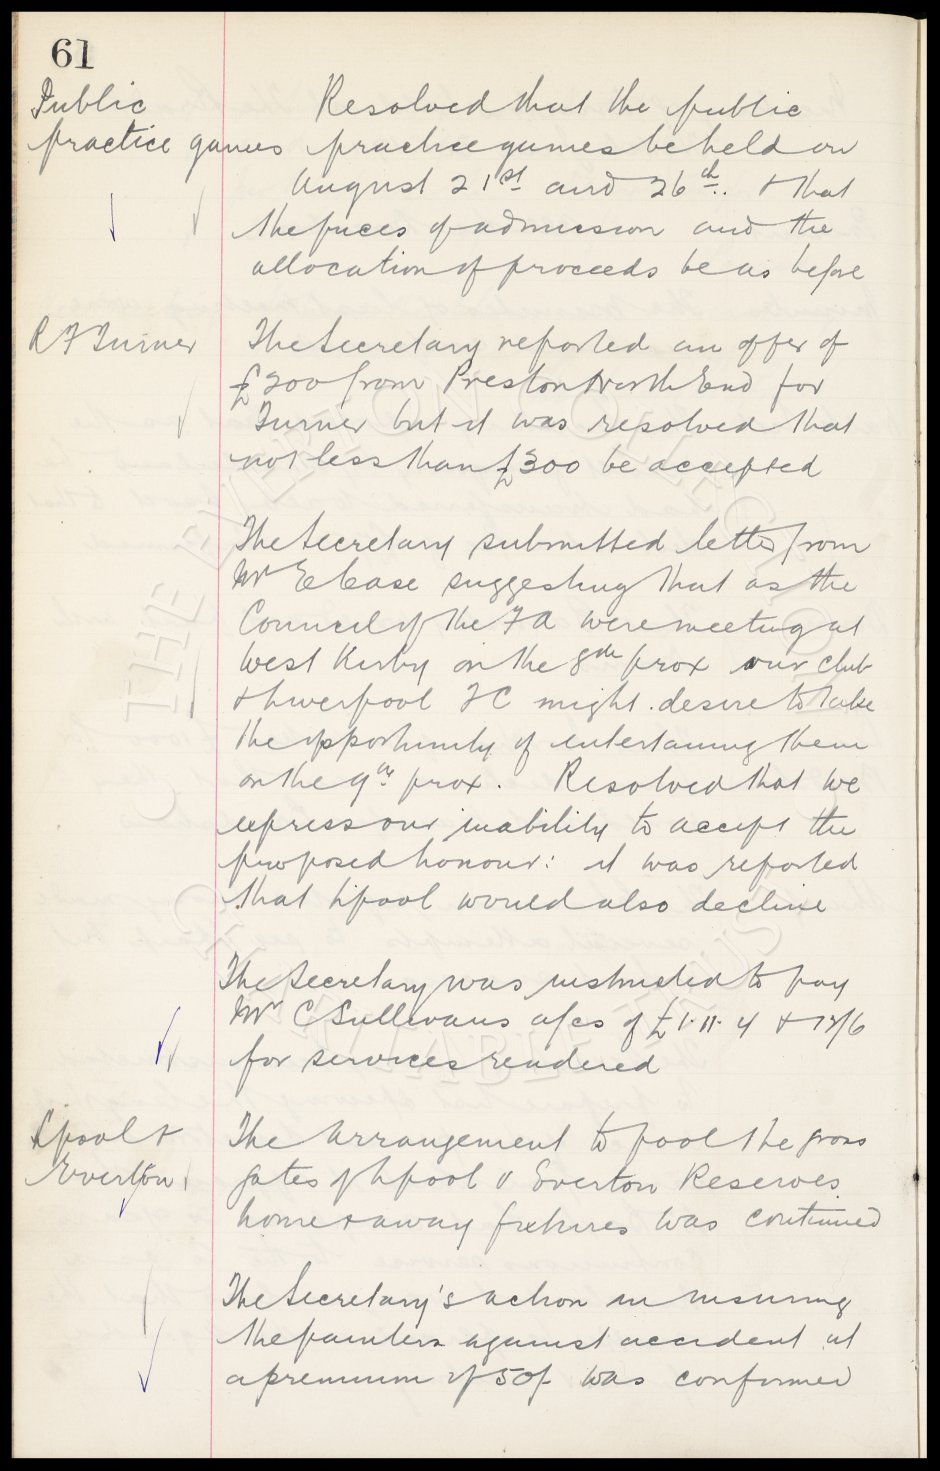 61
Public
practice games
Resolved that the public
practice games be held on
August 21st and 26th. & that
the prices of admission and the
allocation of proceeds be as before
R F Turner
The Secretary reported an offer of
£200 from Preston North End for
Turner but it was resolved that
not less than £300 be accepted
The Secretary submitted letter from
Mr E Case suggesting that as the
Council of the FA were meeting at
West Kirby on the 8th prox our club
& Liverpool FC might desire to take
the opportunity of entertaining them
on the 9th prox. Resolved that we
express our inability to accept the
proposed honour: it was reported
that Lpool would also decline
The Secretary was instructed to pay
Mr C Sullivans a/cs of £1.11.4 &
for services rendered
Lpool &
Everton
The Arrangement to pool the gross
gates of Lpool v Everton Reserves
home & away fixtures was continued
The Secretary's action in insuring
the painters against accident at
a premium of 50/- was confirmed
THE EVERTON COLLECTION
CHARITABLE TRUST